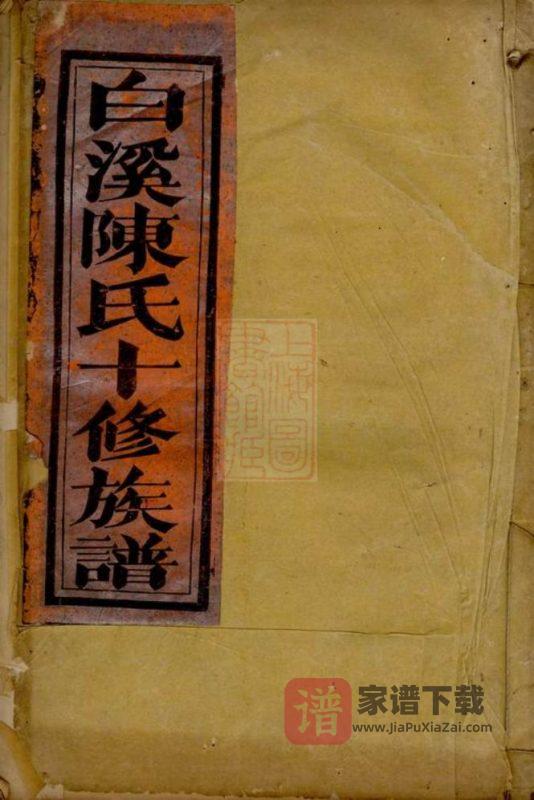 白溪陳氏十修族譜
上海圖
書館藏
谱
家谱下载
www.JiaPuXiaZai.com